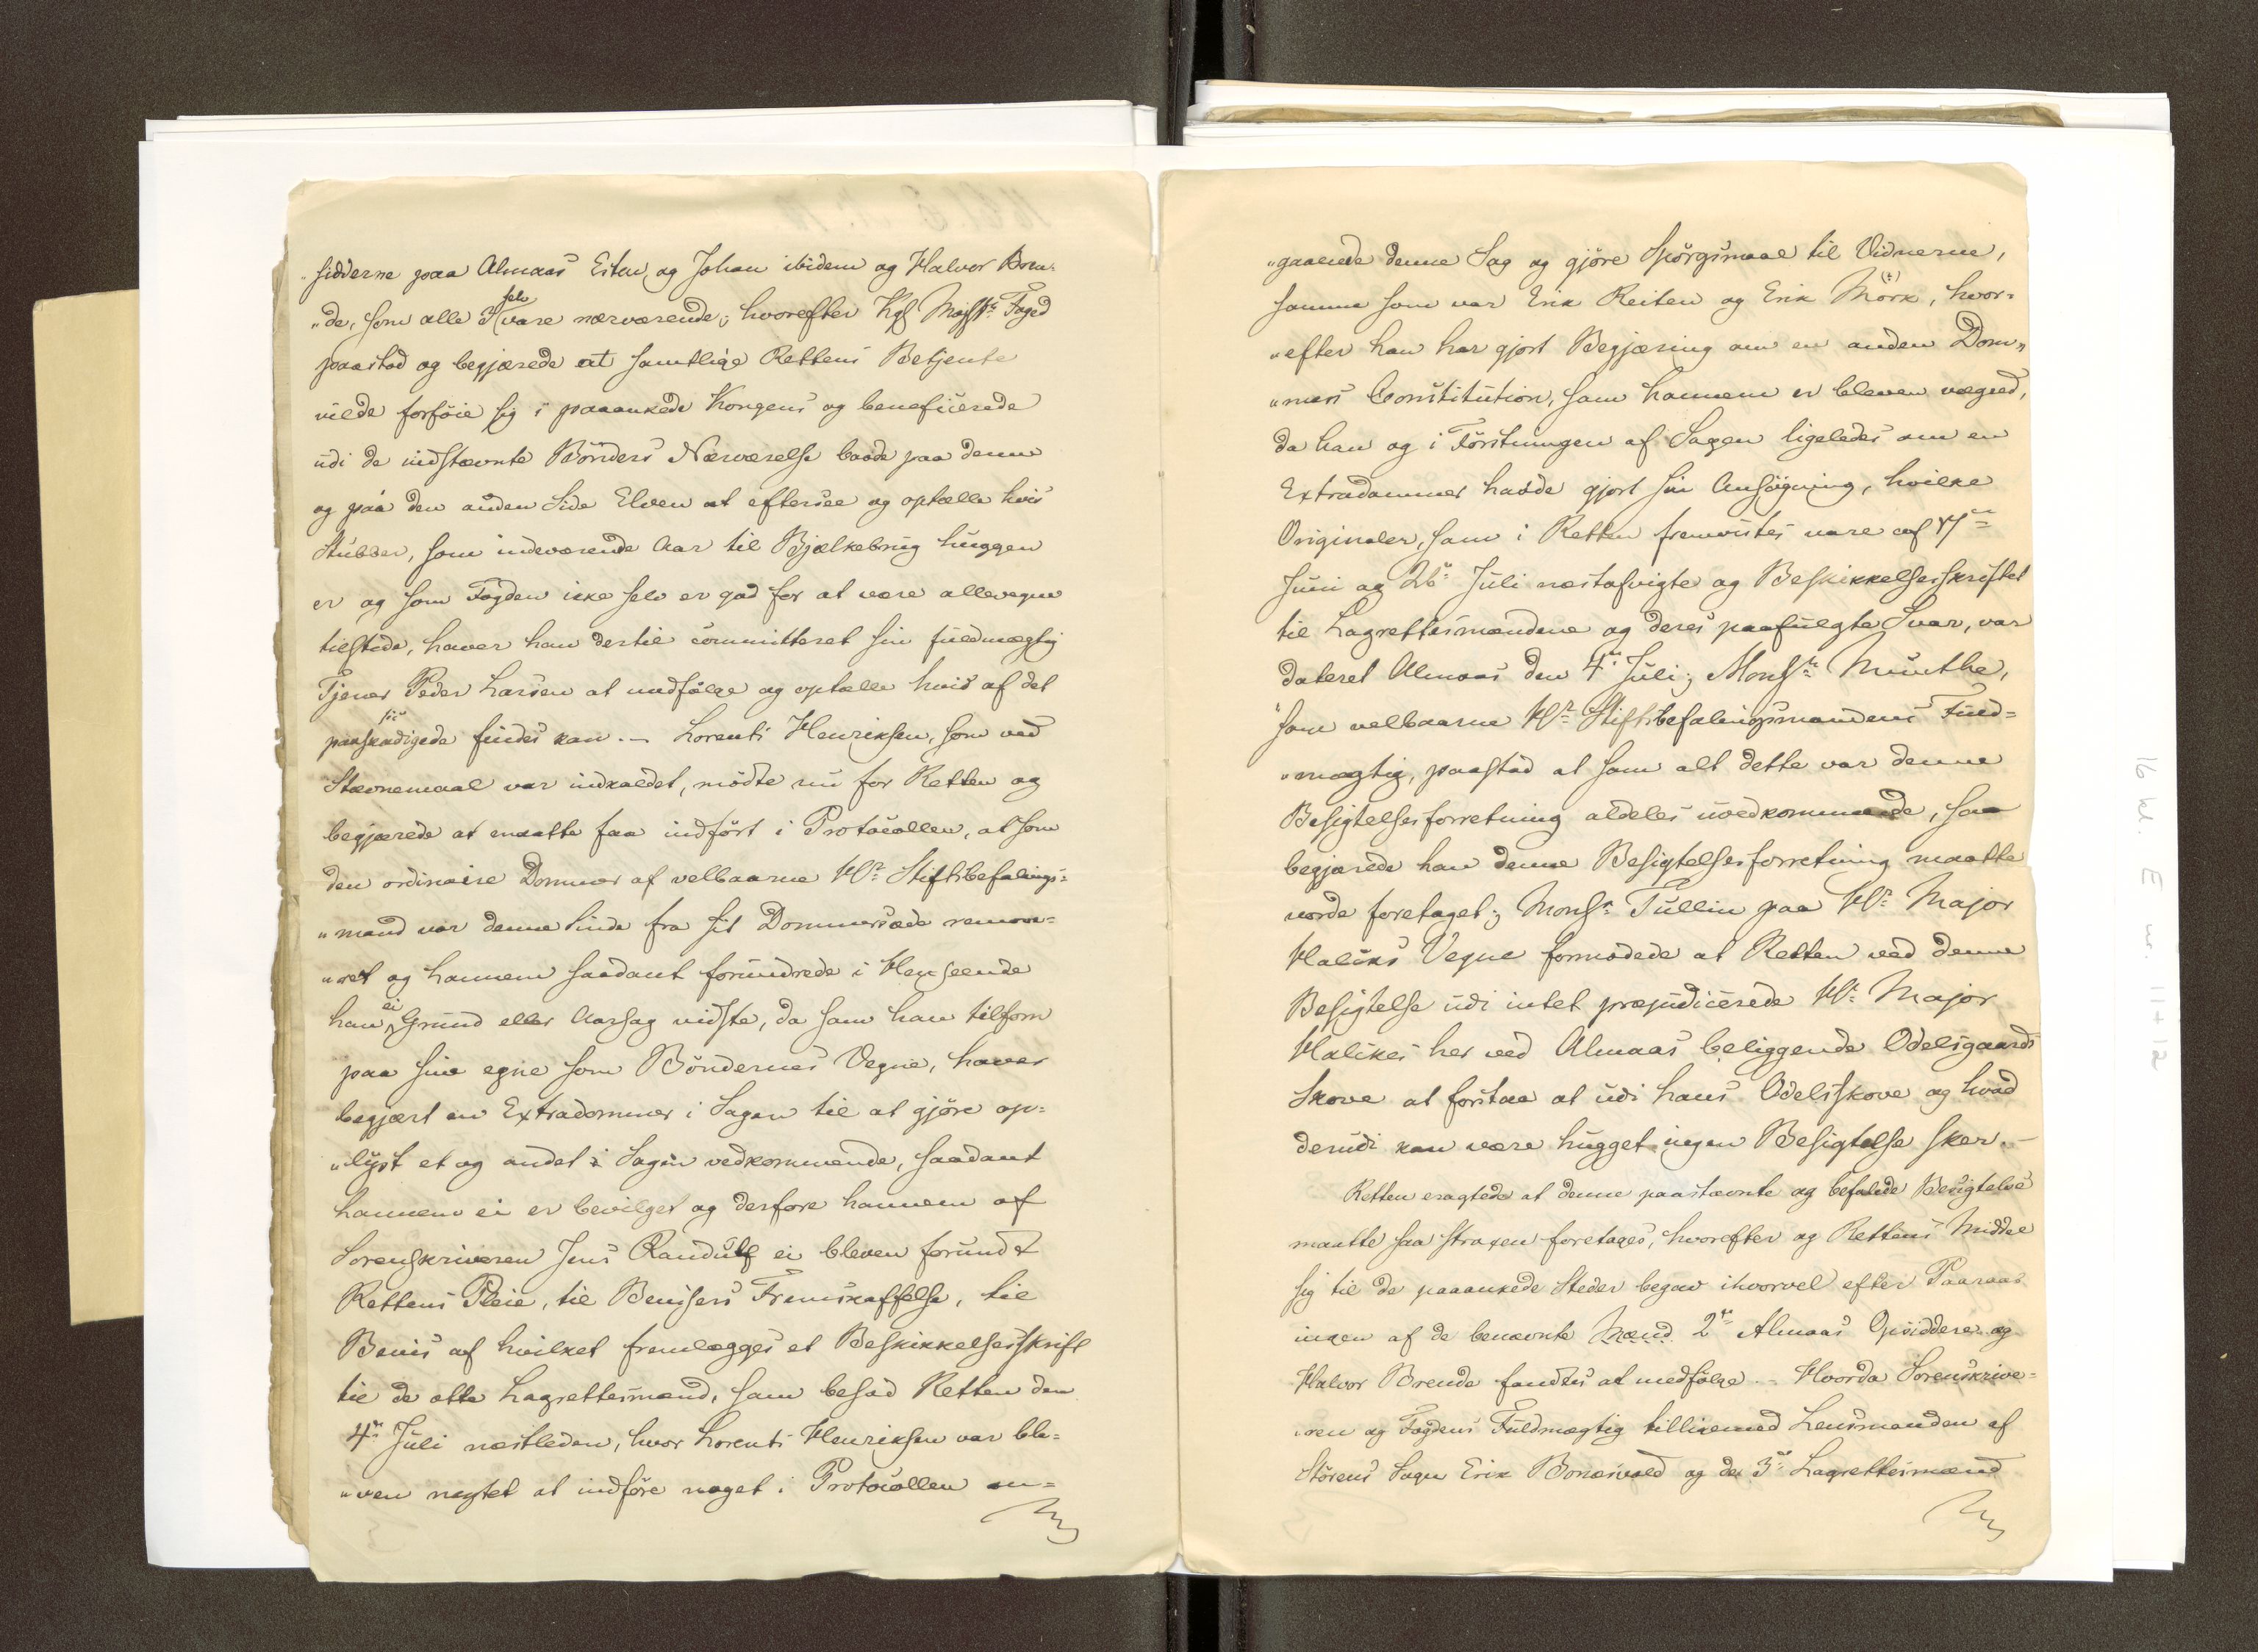 "sidderne paa Almaas Esten og Johan ibidem og Halvor Bren-
"de, som alle 3 selv vare nærværende; hvorefter Kgl Majst:s Foged
paastod og begjærede at samtlige Rettens Betjente
vilde forföie sig i paaankede Kongens og beneficerede
udi de indstævnte Bönders Nærværelse baade paa denne
og paa den anden Side Elven at eftersee og optælle hvis
Stubber, som indeværende Aar til Bjelkebrug huggen
er og som Fogden ikke selv er god for at være allevegne
tilstede, haver han dertil committeret sin fuldmægtig
Tjener Peder Larsen at medfölge og optælle hvis af det
paaskadigede sic findes kan. — Lorents Henriksen, som ved
Stævnemaal var indkaldet, mödte nu for Retten og
begjærede at maatte faa indfört i Protocollen, at som
den ordinaire Dommer af velbaarne Hr: Stiftsbefalings=
"mand var denne Sinde fra sit Dommersæde remove=
"ret og hannem saadant forundrede i Henseende
han ei Grund eller Aarsag vidste, da som han tilforn
paa sine egne som Böndernes Vegne, haver
begjært en Extradommer i Sagen til at gjöre op=
"lyst et og andet i Sagen vedkommende, saadant
hannem ei er bevilget og derfore hannem af
Sorenskriveren Jens Randulf ei bleven forundt
Rettens Pleie, til Bevisers Fremskaffelse, til
Bevis af hvilket fremlægges et Beskikkelsesskrift
til de otte Lagrettesmænd, som besad Retten den
4de Juli næstleden, hvor Lorents Henriksen var ble=
"ven negtet at indföre noget i Protocollen an=
"gaaende denne Sag og gjöre Spörgsmaal til Vidnerne,
samme som var Erik Reiten og Erik Mörk, hvor=
"efter han har gjort Begjæring om en anden Dom"
"mers Constitution, som hannem er bleven vægred,
da han og i Förstningen af Sagen ligeledes om en
Extradommer hadde gjort sin Ansögning, hvilke
Originaler, som i Retten fremvistes vare af 17de
Juni og 26de Juli næstafvigte og Beskikkelsesskriftet
til Lagrettesmændene og deres paafulgte Svar, var
dateret Almaas den 4de Juli; Monsr: Munthe,
som velbaarne Hr: Stiftsbefalingsmandens Fuld=
"mægtig, paastod at som alt dette var denne
Besigtelsesforretning aldeles uvedkommende, saa
begjærede han denne Besigtelsesforretning maatte
vorde foretaget; Monsr: Tullin paa Hr: Major
Haliks Vegne formodede at Retten ved denne
Besigtelse udi intet præjudicerede Hr: Major
Halikes her ved Almaas beliggende Odelsgaards
Skove at forstaa at udi hans Odelsskove og hvad
derudi kan være hugget ingen Besigtelse sker. —
Retten eragtede at denne paastævnte og befalede Besigtelse
maatte saa straxen foretages, hvorefter og Rettens Middel
sig til de paaankede Steder begav ihvorvel efter Paaraab
ingen af de benævnte Mænd 2de Almaas Opsiddere og
Halvor Brende fandtes at medfölge. — Hvorda Sorenskrive=
"ren og Fogdens Fuldmægtig tilligemed Lensmanden af
Störens Sogn Erik Bonesvold og de 3de Lagrettesmænd
16 kl. E nr. 11+12